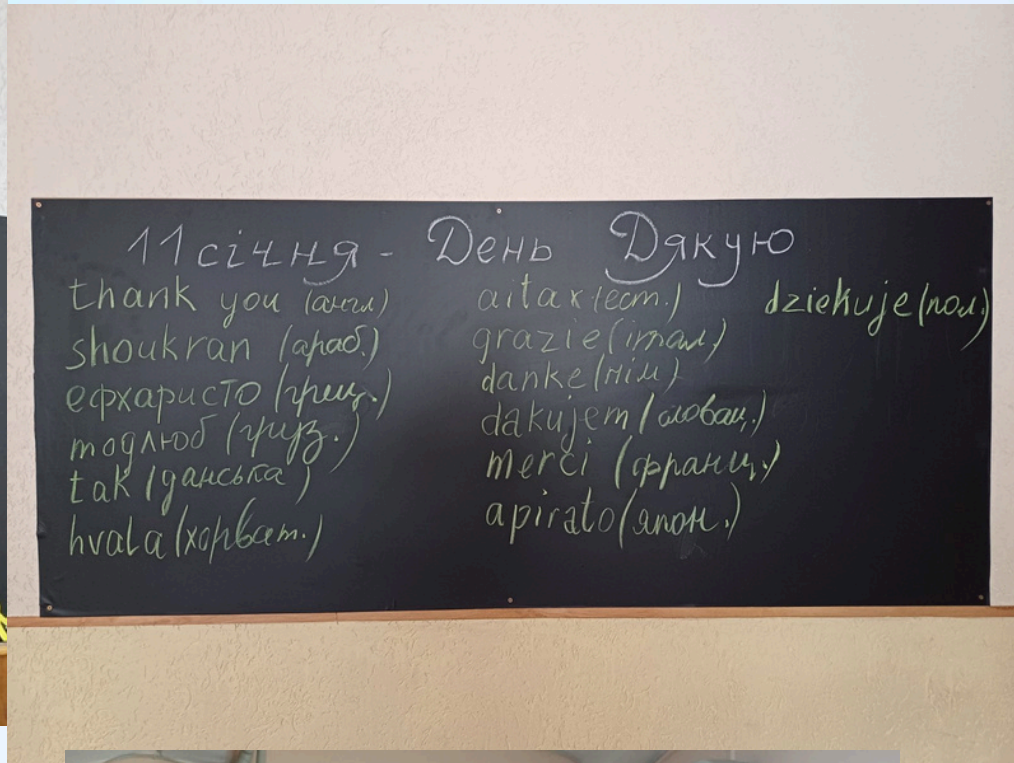 11 січня - День Дякую
thank you (англ)
shoukran (араб.)
ефхаристо (грец.)
мадлюб (груз.)
tak (данська)
hvala (хорват.)
aitax (ест.)
grazie (італ)
danke (нім)
dakujem (словац.)
merci (франц.)
apirato (япон.)
dziekuje (пол.)